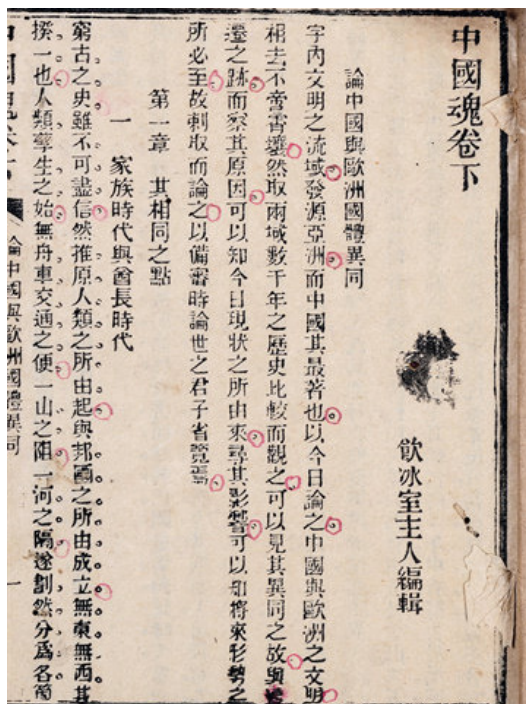 中國魂卷下
飮冰室主人編輯
論中國與歐洲國體異同
宇內文明之流域發源亞洲而中國其最著也以今日論之中國與歐洲之文明
相去不啻霄壤然取兩域數千年之歷史比較而觀之可以見其異同之故與變
遷之跡而察其原因可以知今日現狀之所由來尋其影響可以知將來形勢之
所必至故刺取而論之以備審時論世之君子省覽焉
第一章 其相同之點
一 家族時代與酋長時代
窮古之史雖不可盡信然推原人類之所由起與邦國之所由成立無東無西其
揆一也人類孳生之始無舟車交通之便一山之阻一河之隔遂劃然分爲各箇
論中國與歐洲國體異同 一